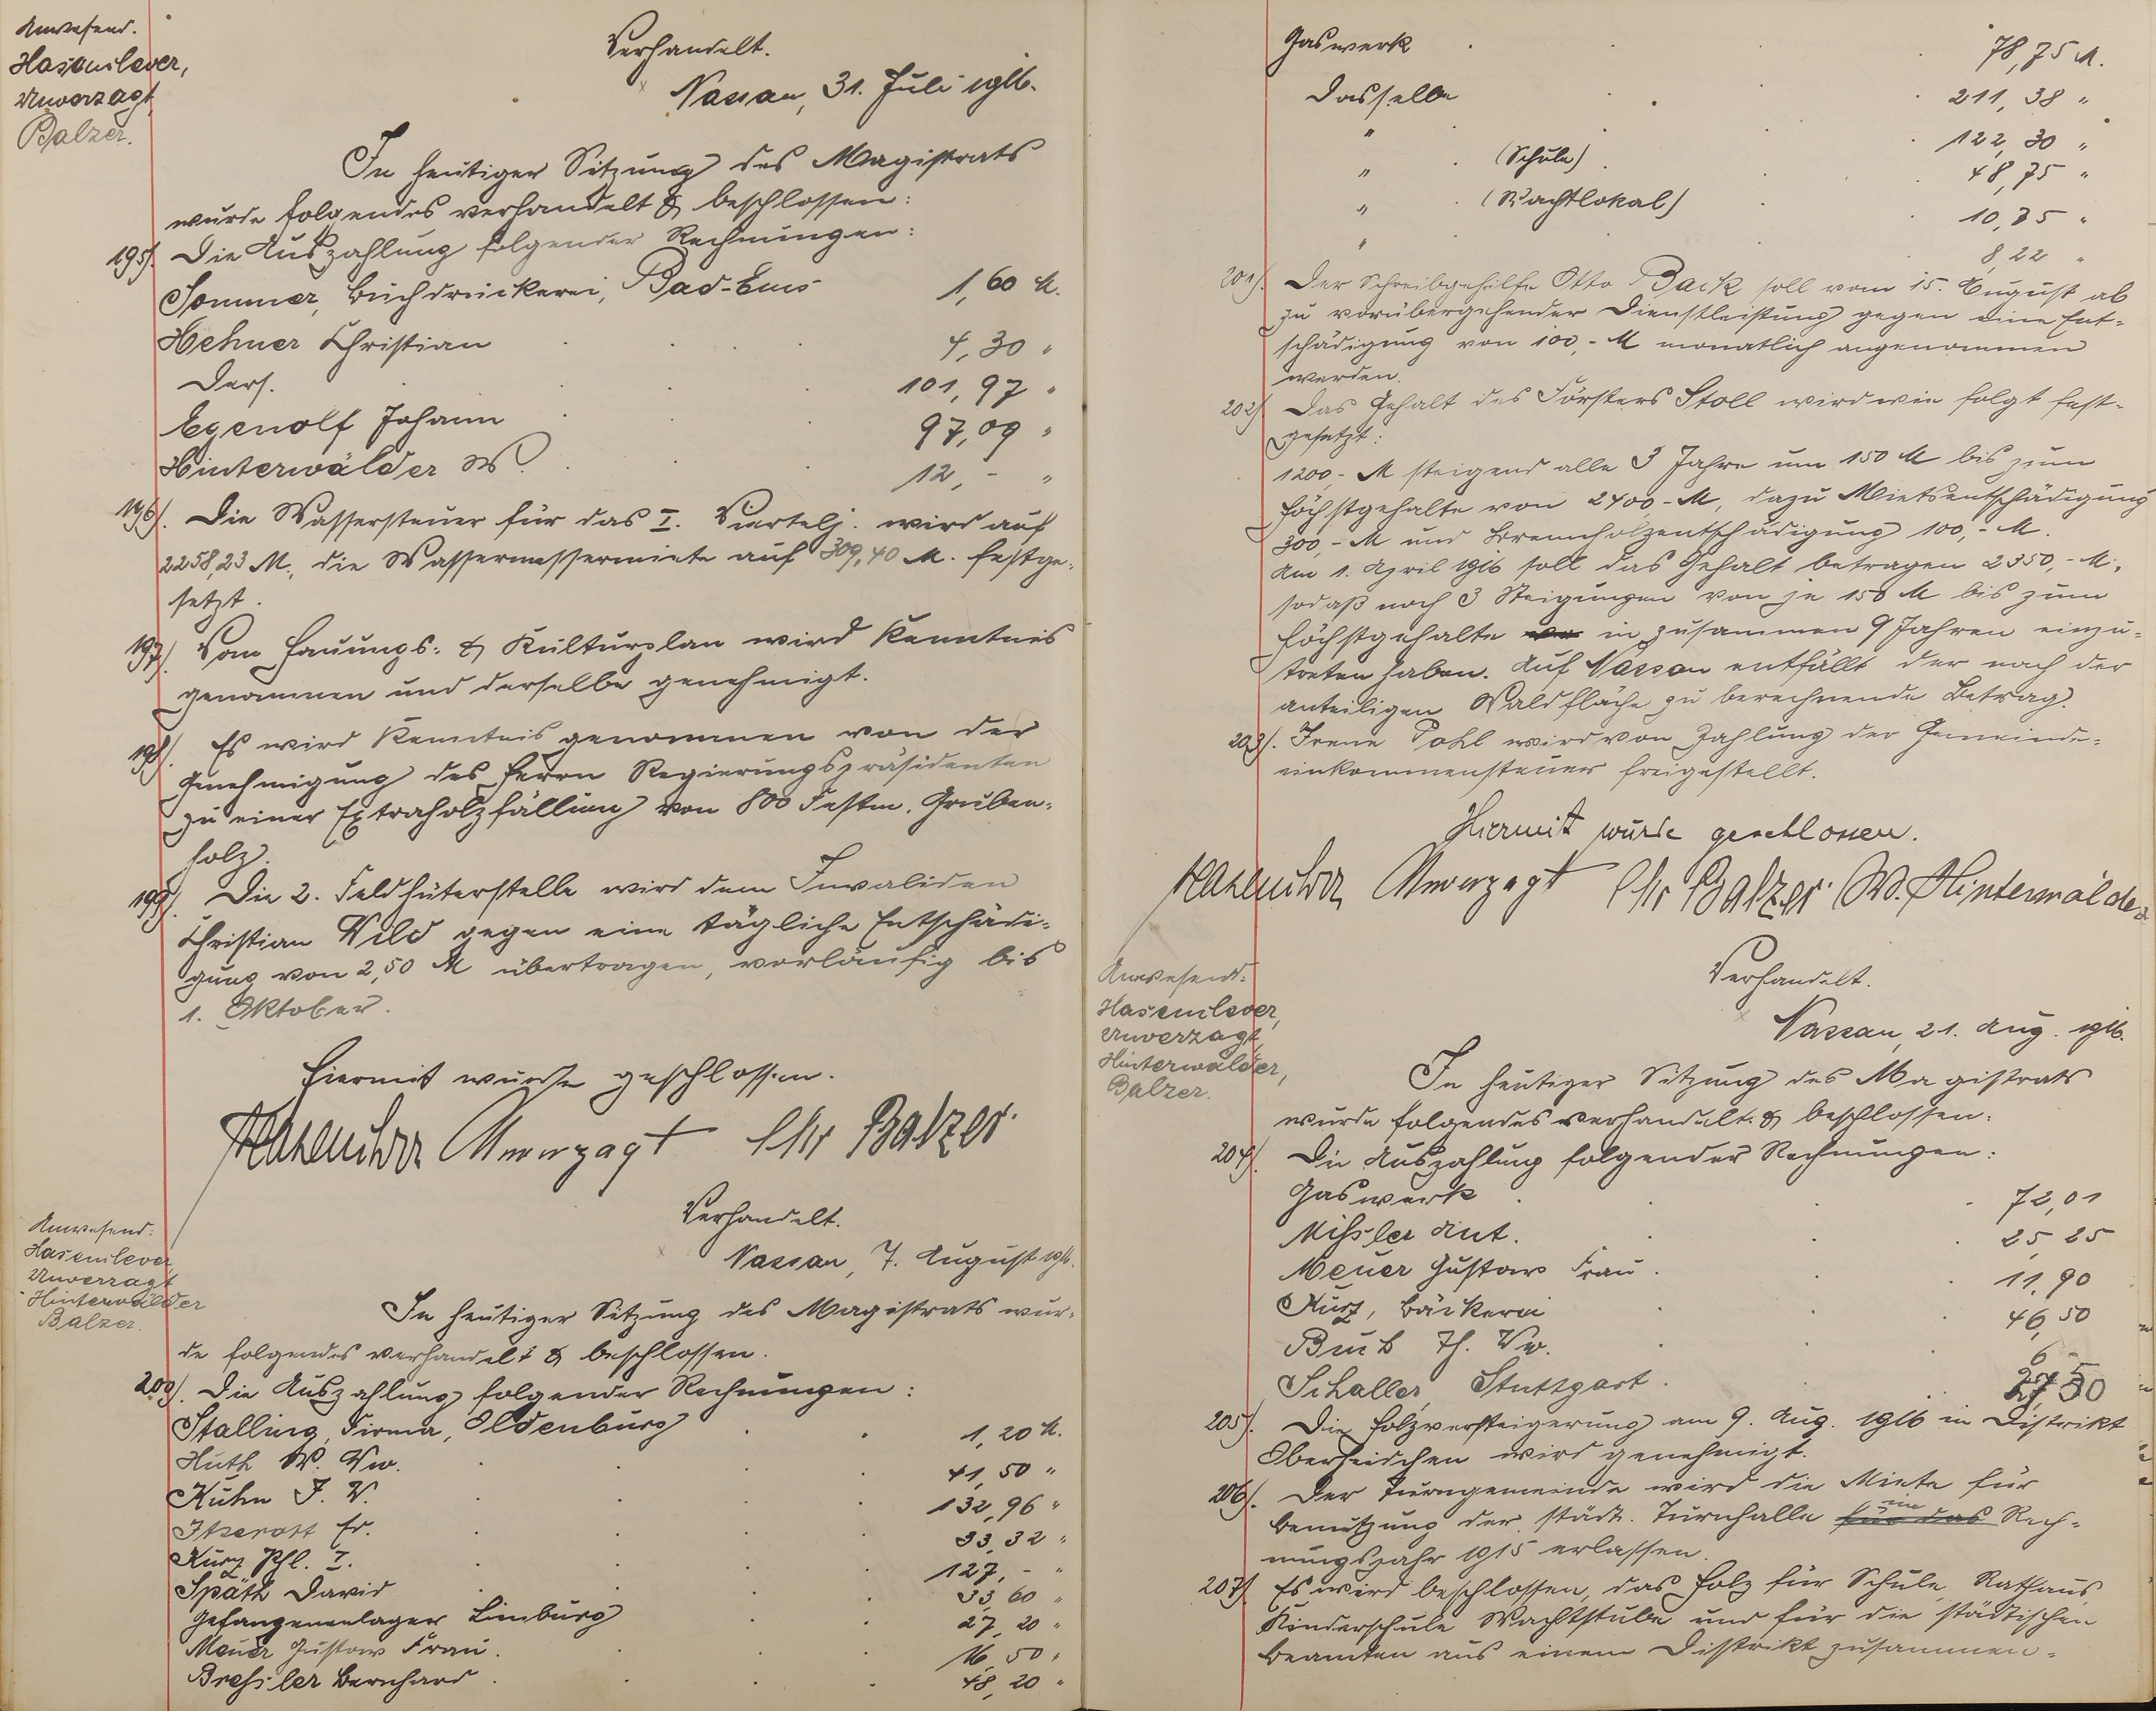 Anwesend.
Hasenclever,
Unverzagt,
Balzer.
Verhandelt.
Nassau, 31. Juli 1916.
In heutiger Sitzung des Magistrats
wurde folgendes verhandelt & beschlossen:
195). Die Auszahlung folgender Rechnungen:
Sommer, Buchdruckerei, Bad-Ems 1,60 M.
Hehner Christian 4,30 "
Ders. 101,97 "
Egenolf Johann 97,09 "
Hinterwälder W. 12,- "
196). Die Wassersteuer für das I. Viertelj. wird auf
2258,23 M., die Wassermessermiete auf 309,40 M. festge-
setzt.
197). Vom Hauungs- & Kulturplan wird Kenntnis
genommen und derselbe genehmigt.
198). Es wird Kenntnis genommen von der
Genehmigung des Herrn Regierungspräsidenten
zu einer Extraholzfällung von 800 Festm. Gruben-
holz.
199). Die 2. Feldhüterstelle wird dem Invaliden
Christian Wild gegen eine tägliche Entschädi-
gung von 2,50 M übertragen, vorläufig bis
1. Oktober.
Hiermit wurde geschlossen.
Hasenclever Unverzagt Chr Balzer.
Anwesend:
Hasenclever,
Unverzagt
Hinterwälder
Balzer.
Verhandelt.
Nassau, 7. August 1916.
In heutiger Sitzung des Magistrats wur-
de folgendes verhandelt & beschlossen.
200). Die Auszahlung folgender Rechnungen:
Stalling, Firma, Oldenburg 1,20 M.
Huth W. Ww. 41,50 "
Kuhn J. W. 132,96 "
Fr. 33,32 "
Kurz Phl. I. 127,- "
Späth David 33,60 "
Gefangenenlager Limburg 27,20 "
Meuer Gustav Frau. 16,50 "
Bressler Bernhard 48,20 "
Gaswerk 78,75 M.
Dasselbe 211,38 "
" 122,30 "
" (Schule) 48,75 "
" (Wachtlokal) 10,35 "
" 8,22 "
201). Der Schreibgehilfe Otto Back soll vom 15. August ab
zu vorübergehender Dienstleistung gegen eine Ent-
schädigung von 100,- M monatlich angenommen
werden.
202) Das Gehalt des Försters Stoll wird wie folgt fest-
gesetzt:
1200,- M steigend alle 3 Jahre um 150 M bis zum
Höchstgehalte von 2400,- M, dazu Mietsentschädigung
300,- M und Brennholzentschädigung 100,- M.
Am 1. April 1916 soll das Gehalt betragen 2350,- M.,
sodaß noch 3 Steigungen von je 150 M bis zum
Höchstgehalte in zusammen 9 Jahren einzu-
treten haben. Auf Nassau entfällt der nach der
anteiligen Waldfläche zu berechnende Betrag.
203). Irene Pohl wird von Zahlung der Gemeinde-
einkommensteuer freigestellt.
Hiermit wurde geschlossen.
Hasenclever Unverzagt Chr Balzer. W. Hinterwälder
Anwesend:
Hasenclever,
Unverzagt,
Hinterwälder,
Balzer.
Verhandelt.
Nassau, 21. Aug. 1916.
In heutiger Sitzung des Magistrats
wurde folgendes verhandelt & beschlossen:
204). Die Auszahlung folgender Rechnungen:
Gaswerk 72,01
Missler Ant. 25,25
Meuer Gustav Frau. 11,90
Kurz, Bäckerei 46,50
Buch Th. Ww. 6,-
Schaller, Stuttgart.
205). Die Holzversteigerung am 9. Aug. 1916 in Distrikt
Oberheidchen wird genehmigt.
206). Der Turngemeinde wird die Miete für
Benutzung der städt. Turnhalle für das im Rech-
nungsjahr 1915 erlassen.
207). Es wird beschlossen, das Holz für Schule, Rathaus,
Kinderschule Wachtstube und für die städtischen
Beamten aus einem Distrikt zusammen-